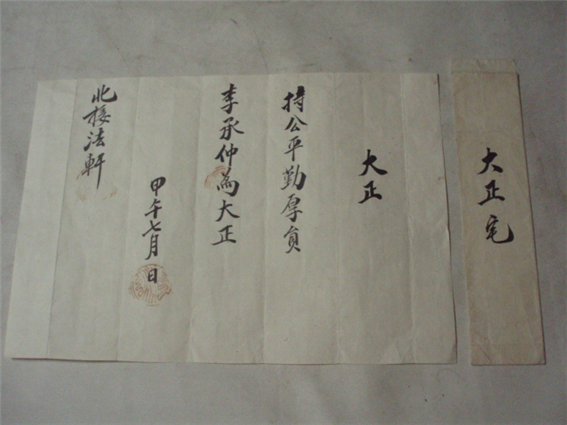 大正宅
大正
持公平勤厚員
李承仲為大正
甲午七月日
北接法軒